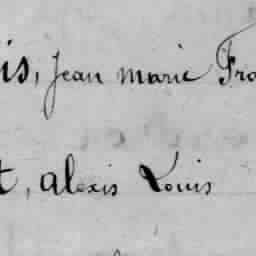 is, Jean Marie Fra
t, Alexis Louis